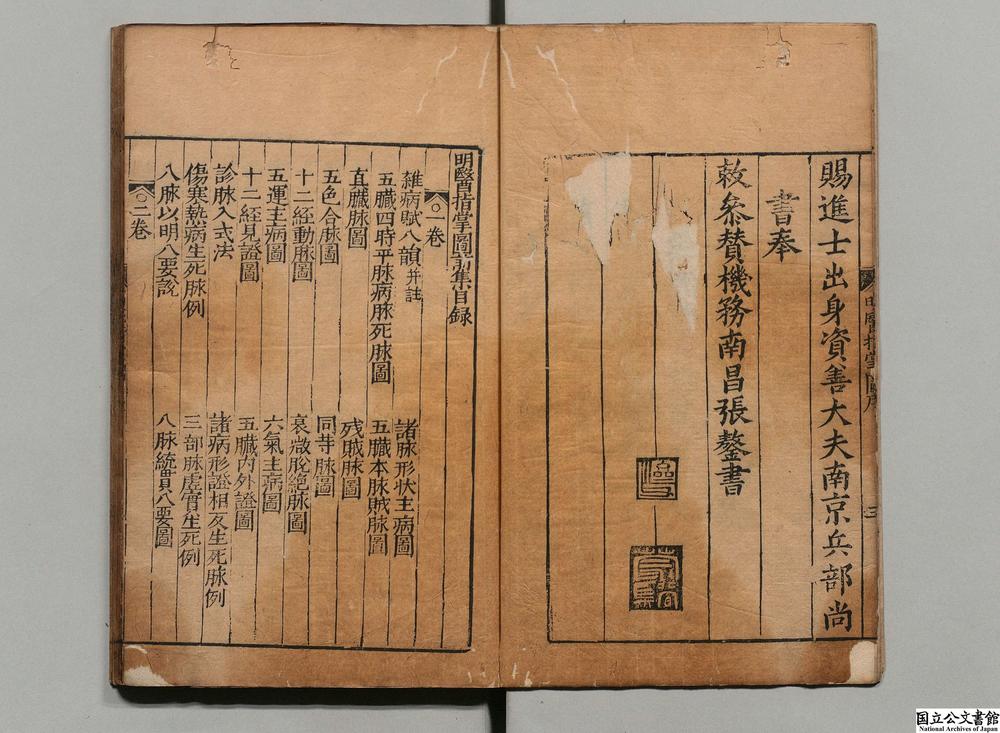 賜進士出身資善大夫南京兵部尚
書奉
敕叅贊機務南昌張鏊書
明醫指掌圖前集目録
一卷
雜病賦八韻并註
諸脉形状主病圖
五臟四時平脉病脉死脉圖
五臟本脉賊脉圖
真臟脉圖
残賊脉圖
五色合脉圖
同等脉圖
十二經動脉圖
衰敵脫絶脉圖
五運主病圖
六氣主病圖
十二經見證圖
五臟内外證圖
診脉入式法
諸病形證相反生死脉例
傷寒熱病生死脉例
三部脉虚實生死例
八脉以明八要說
八脉統貫八要圖
二卷
国立公文書館
National Archives of Japan